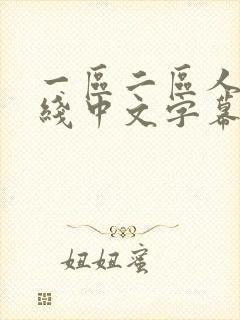 一區二區人
綫中文字幕
妞妞蜜